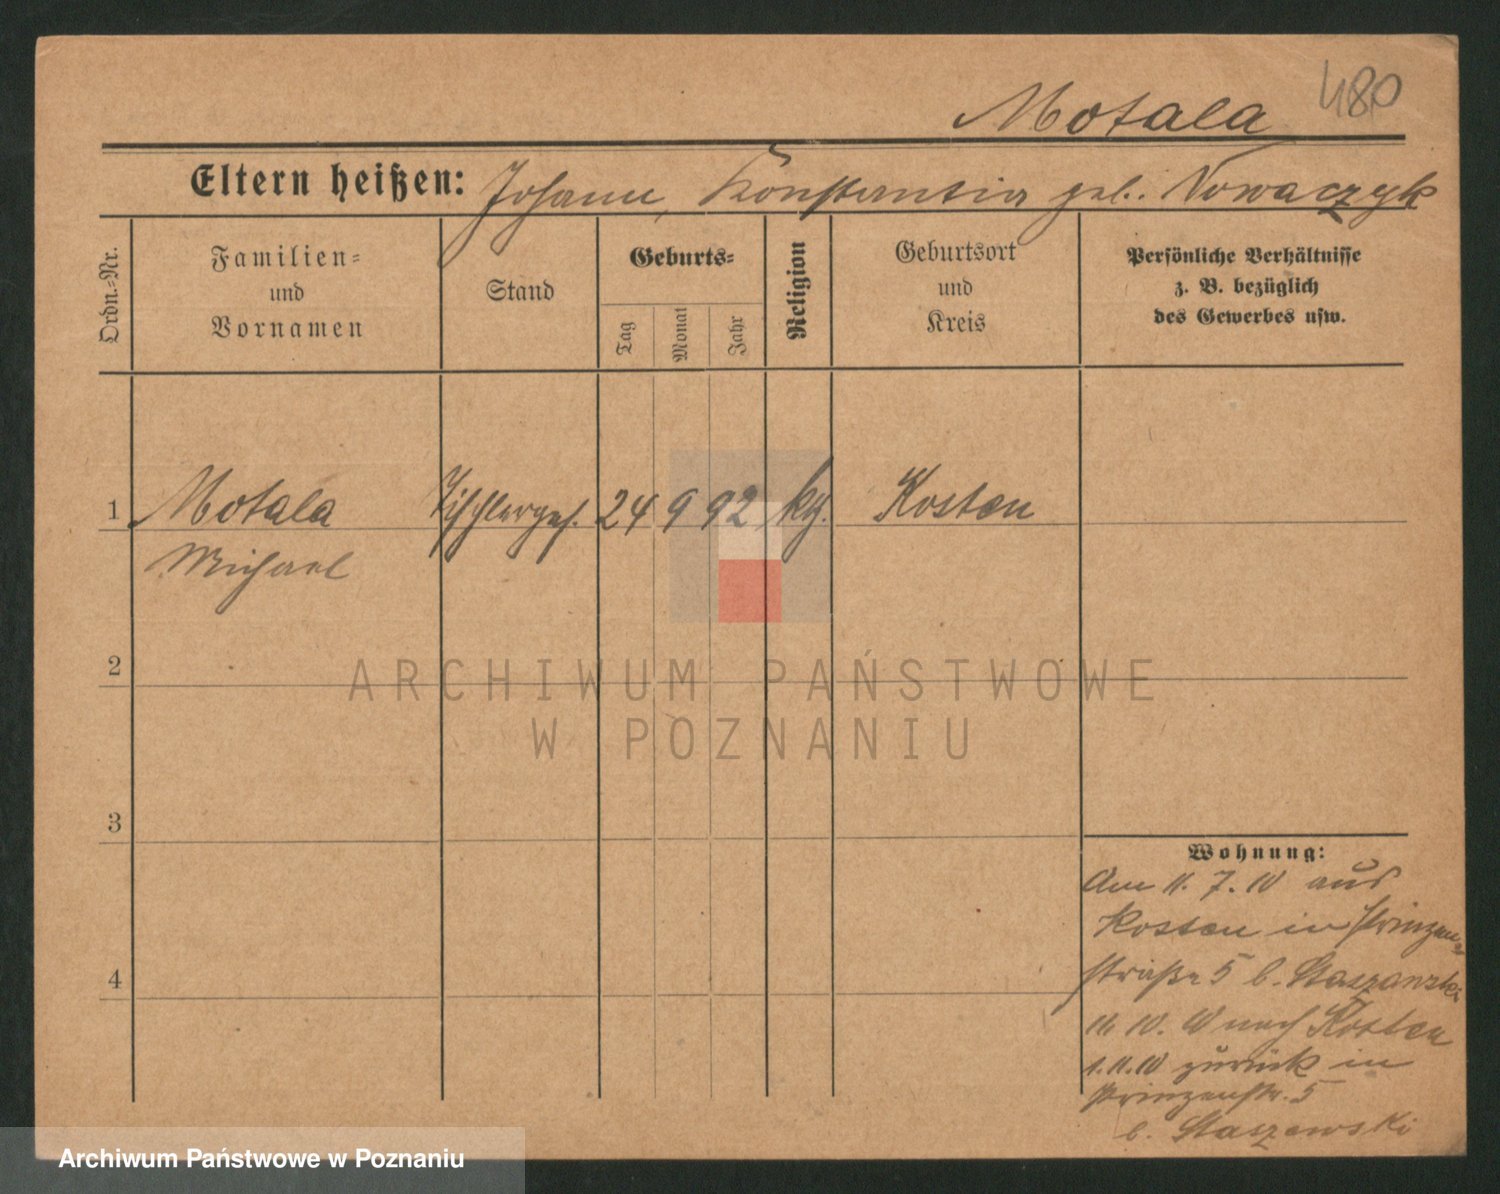 480
Motala
Eltern heißen: Johann, Konstantia geb. Nowaczyk
Ordn.-Nr.
Familien-
und
Vornamen
Stand
Geburts-
Tag
Monat
Jahr
Religion
Geburtsort
und
Kreis
Persönliche Verhältnisse
z. B. bezüglich
des Gewerbes usw.
1 Motala Tischlerges. 24 9 92 kth. Kosten
Michael
2
3
4
Wohnung:
Am 11. 7. 10 aus
Kosten in Prinzen-
straße 5 b. Staszewski
10. 10 nach Kosten
1.11.10 zurück in
Prinzenstr. 5
b. Staszewski
ARCHIWUM PAŃSTWOWE
W POZNANIU
Archiwum Państwowe w Poznaniu